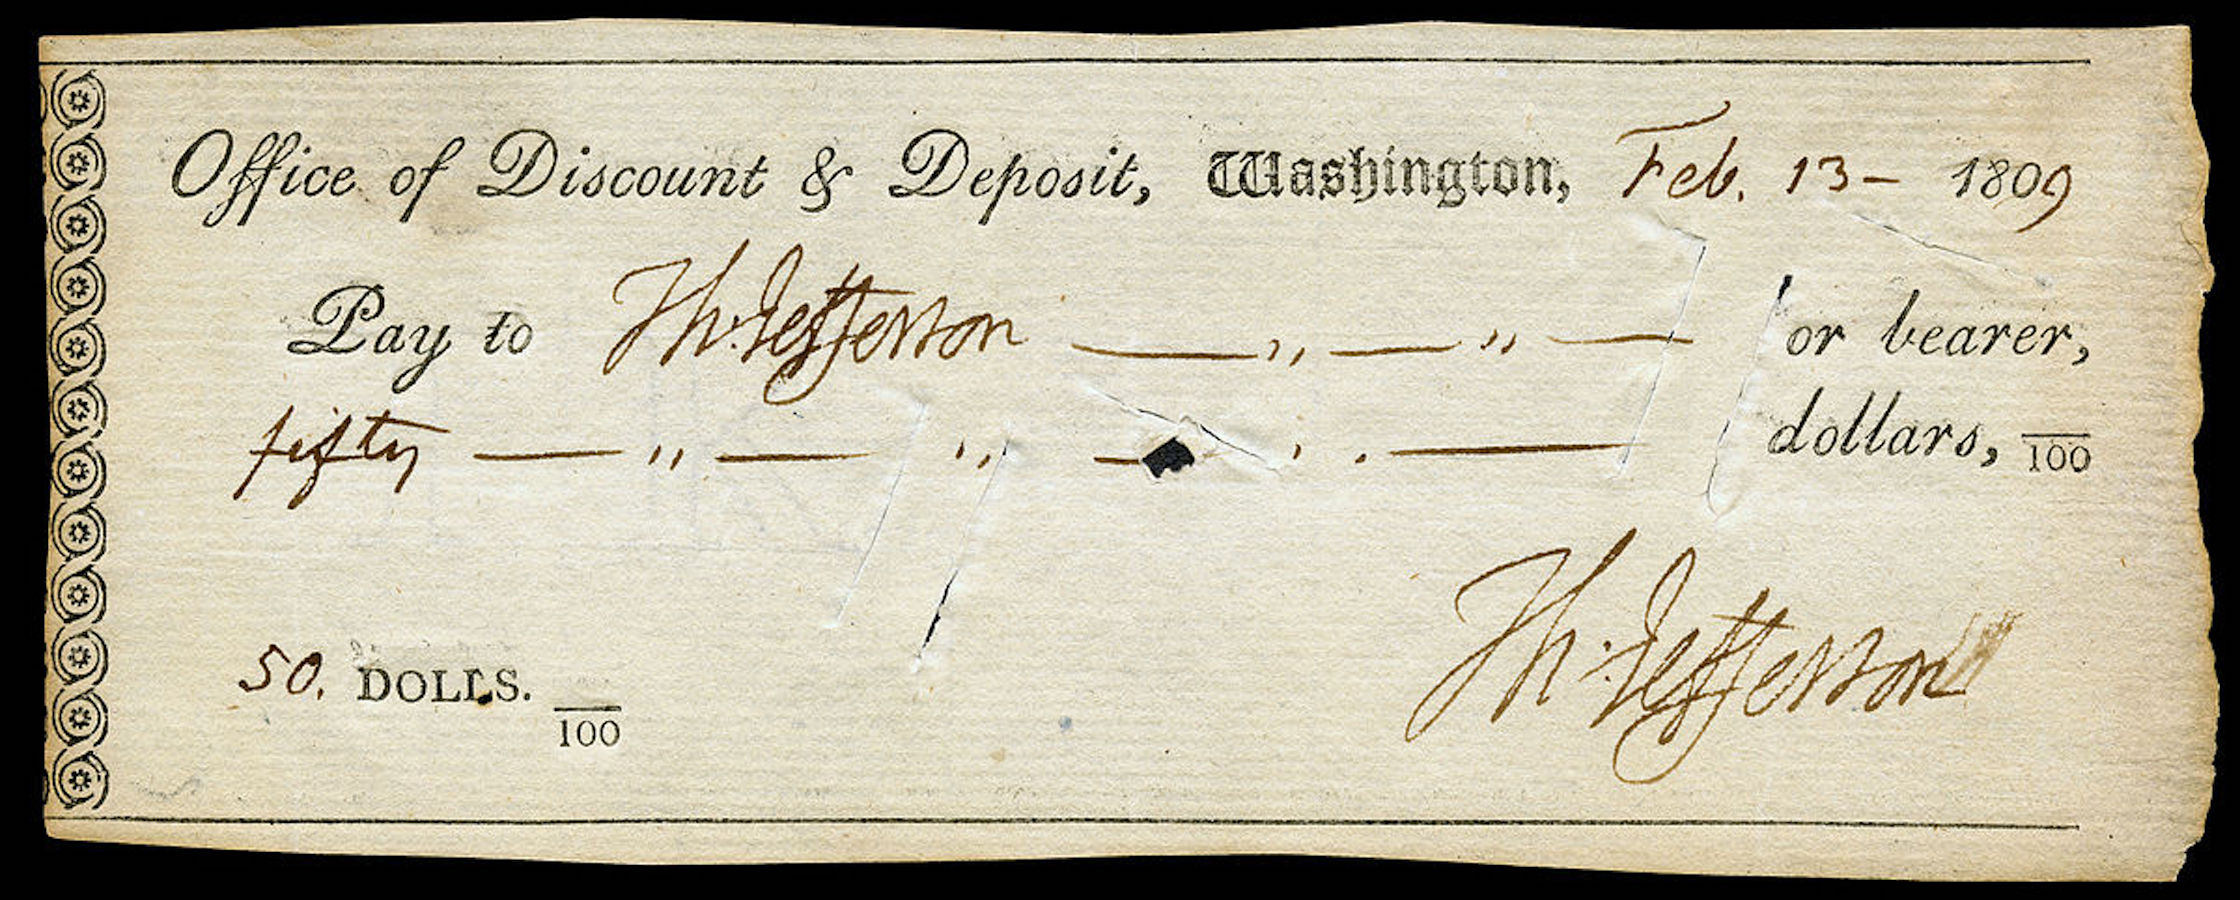 Office of Discount & Deposit, Washington, Feb. 13 — 1809
Pay to Th: Jefferson — " — " — or bearer,
fifty — " — " — " — dollars, /100
50. DOLLS. /100
Th: Jefferson